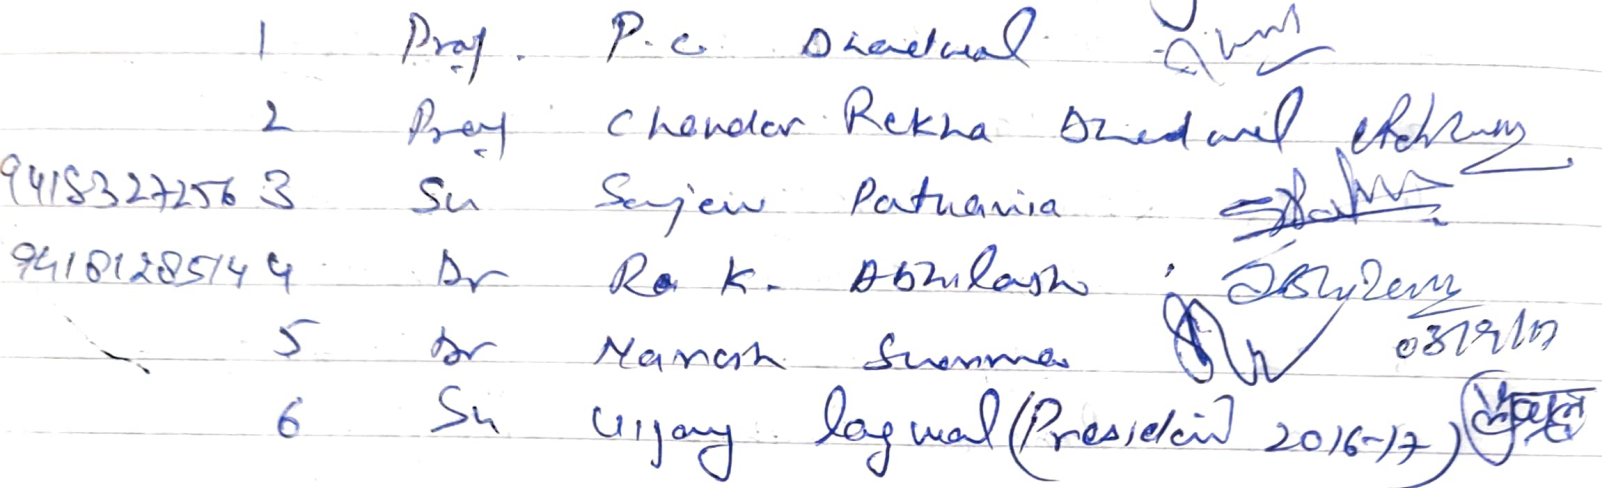 1 Prof. P.C. Dhadwal
2 Prof Chander Rekha Dhadwal
9418327256 3 Sh Sanjeev Pathania
9418128514 4 Dr R. K. Abhilash
03/9/17
5 Dr Manish Sharma
6 Sh Vijay lagwal (President 2016-17)